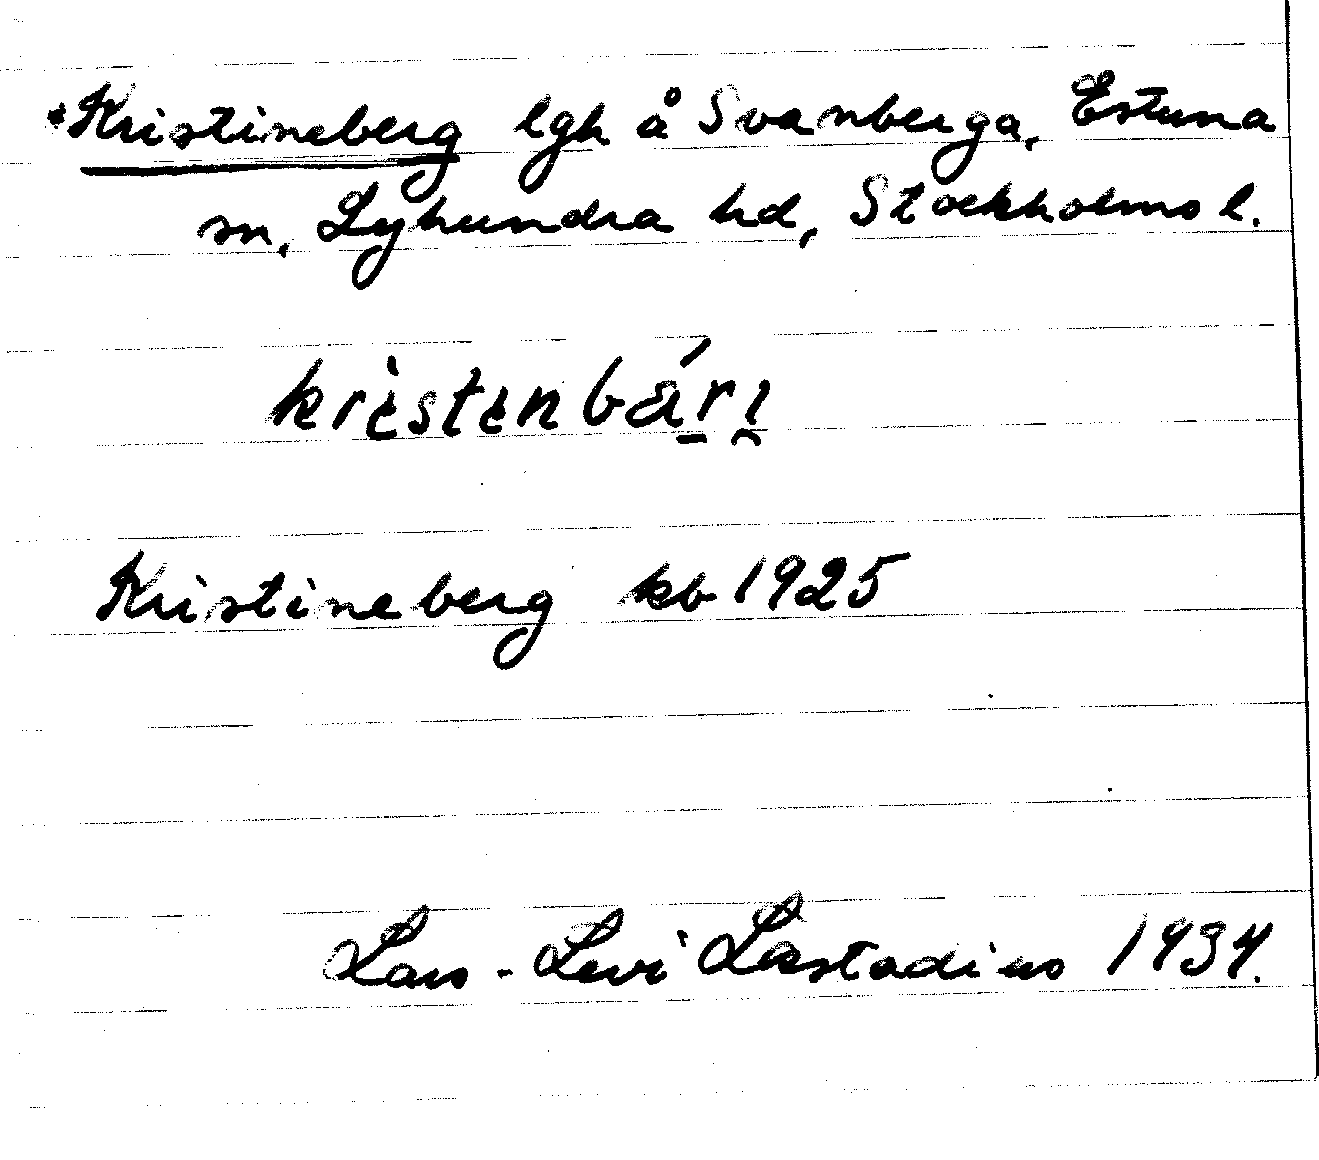 *Kristineberg lgh å Svanberga, Estuna
sn, Lyhundra hd, Stockholms l.
krìstɩnbárɩ̯
Kristineberg kb 1925
Lars-Levi Læstadius 1934.